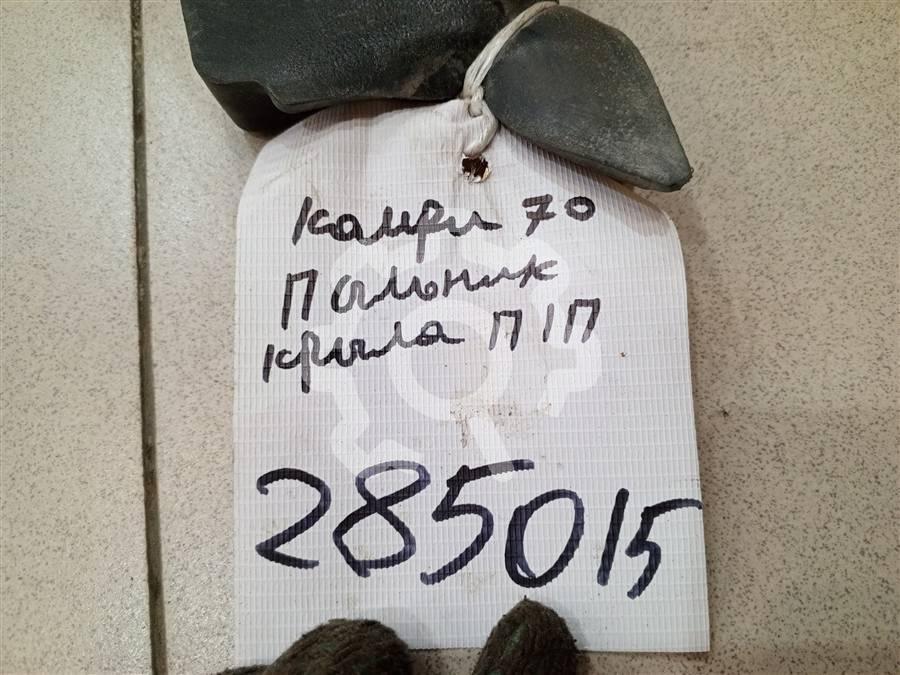 Камри 70
Пыльник
крыла П/П
285015